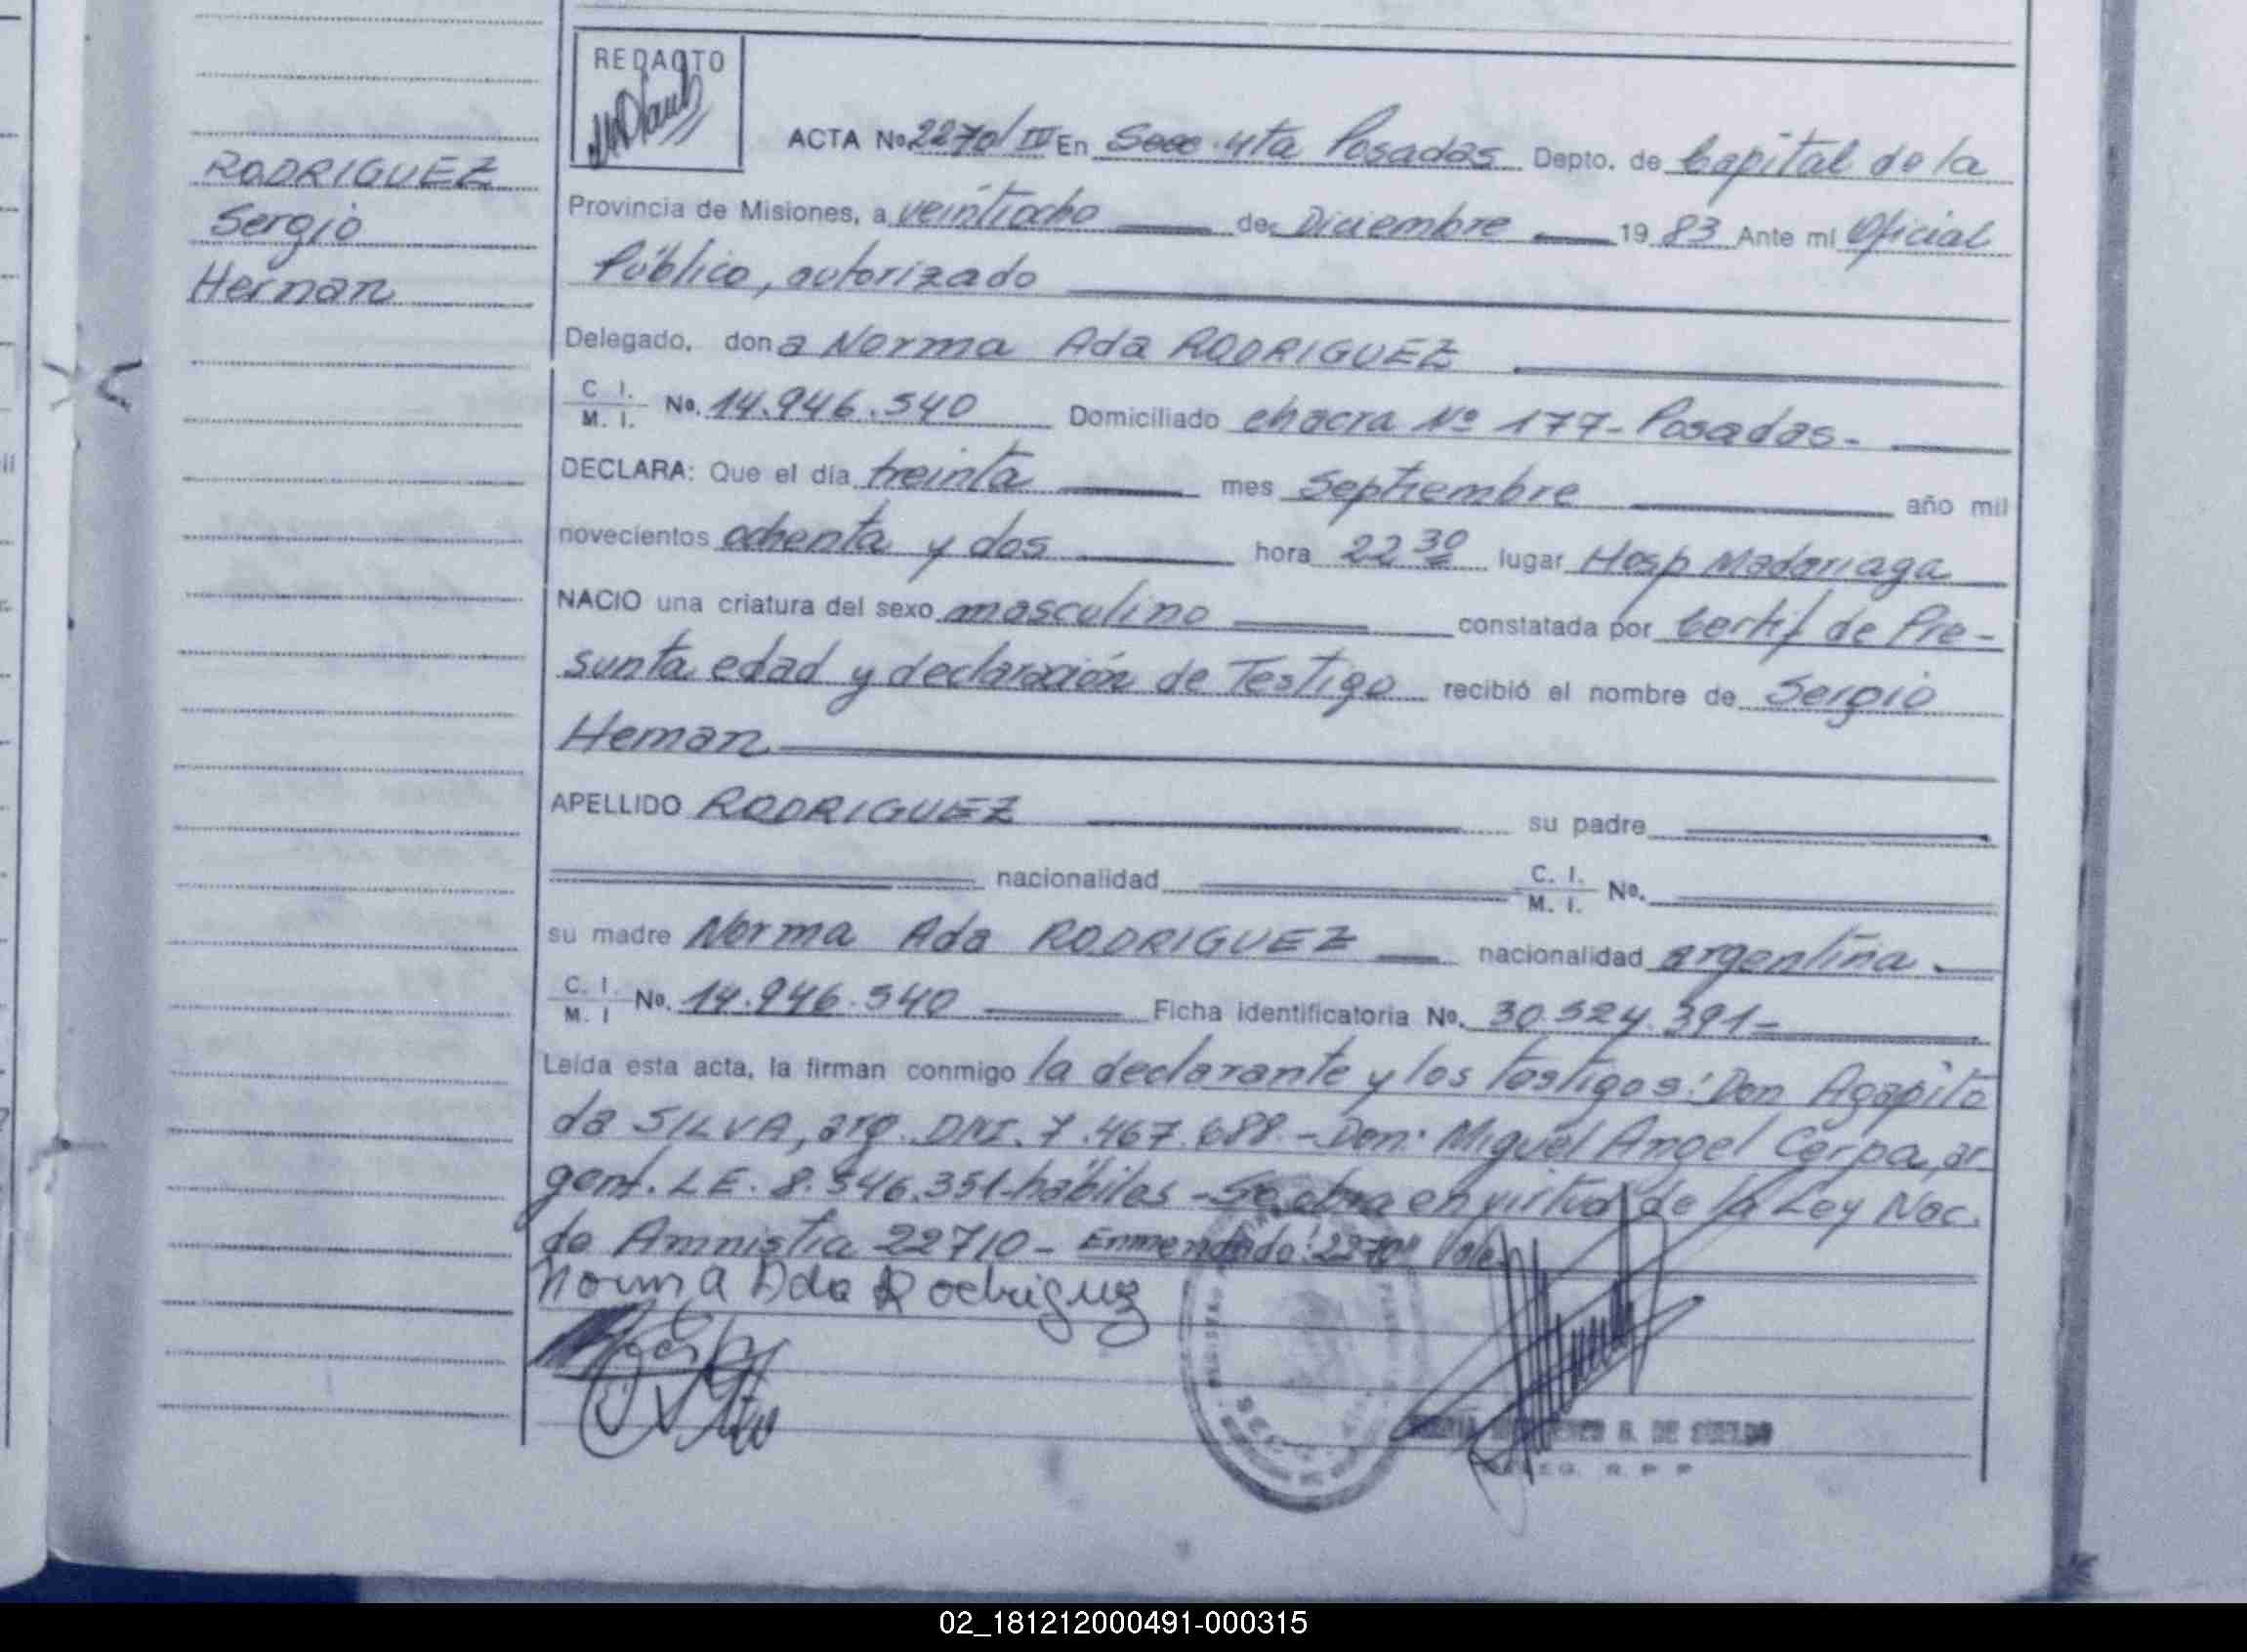 REDACTO
ACTA No 2270/IV En Secc 4ta Posadas Depto. de Capital de la
RODRIGUEZ
Sergio
Hernan
Provincia de Misiones, a veintiocho de Diciembre 19 83 Ante mi Oficial
Público, autorizado
Delegado, don a Norma Ada RODRIGUEZ
C. I.
M. I. No. 14.946.540 Domiciliado chacra Nº 177- Posadas-
DECLARA: Que el día treinta mes Septiembre año mil
novecientos ochenta y dos hora 22 30 lugar Hosp Madariaga
NACIO una criatura del sexo masculino constatada por Certif de Pre-
sunta edad y declaración de Testigo recibió el nombre de Sergio
Hernan
APELLIDO RODRIGUEZ su padre
nacionalidad C. I.
M. I. No.
su madre Norma Ada RODRIGUEZ nacionalidad argentina
C. I.
M. I No. 14.946.540 Ficha identificatoria No. 30.524.391-
Leída esta acta, la firman conmigo la declarante y los testigos: Don Agapito
da SILVA, arg. DNI. 7.467.688.- Don: Miguel Angel Cerpa, ar
gent. LE. 8.546.351-hábiles - Se obra en virtud de la Ley Nac.
de Amnistia 22710- Enmendado: "2270" Vale
Norma Ada Rodriguez
DE SUELDO
R. P. P
02_181212000491-000315